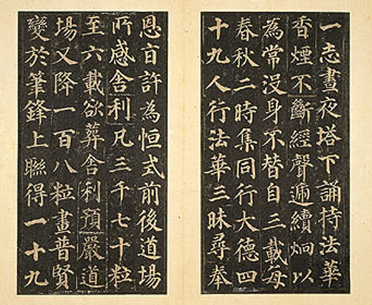 一志晝夜塔下誦持法華
香煙不斷經聲遞續炯以
為常沒身不替自三載每
春秋二時集同行大德四
十九人行法華三昧尋奉
恩旨許為恒式前後道場
所感舍利凡三千七十粒
至六載欲葬舍利預嚴道
場又降一百八粒畫普賢
變於筆鋒上聯得一十九